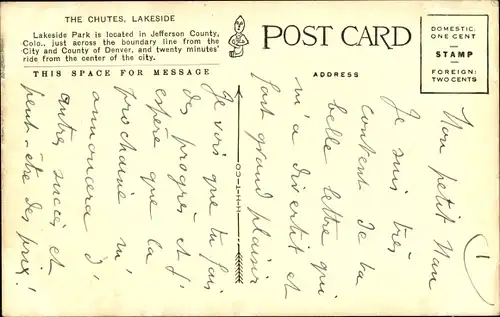 THE CHUTES, LAKESIDE
Lakeside Park is located in Jefferson County,
Colo., just across the boundary line from the
City and County of Denver, and twenty minutes'
ride from the center of the city.
THIS SPACE FOR MESSAGE
POST CARD
ADDRESS
DOMESTIC
ONE CENT
STAMP
FOREIGN:
TWO CENTS
Mon petit Man
Je suis très
content de ta
belle lettre qui
m'a divertit et
fait grand plaisir
Je vois que tu fais
des progrès et j'
espère que la
prochaine m'
annoncera d'
autres succès et
peut-être des prix!